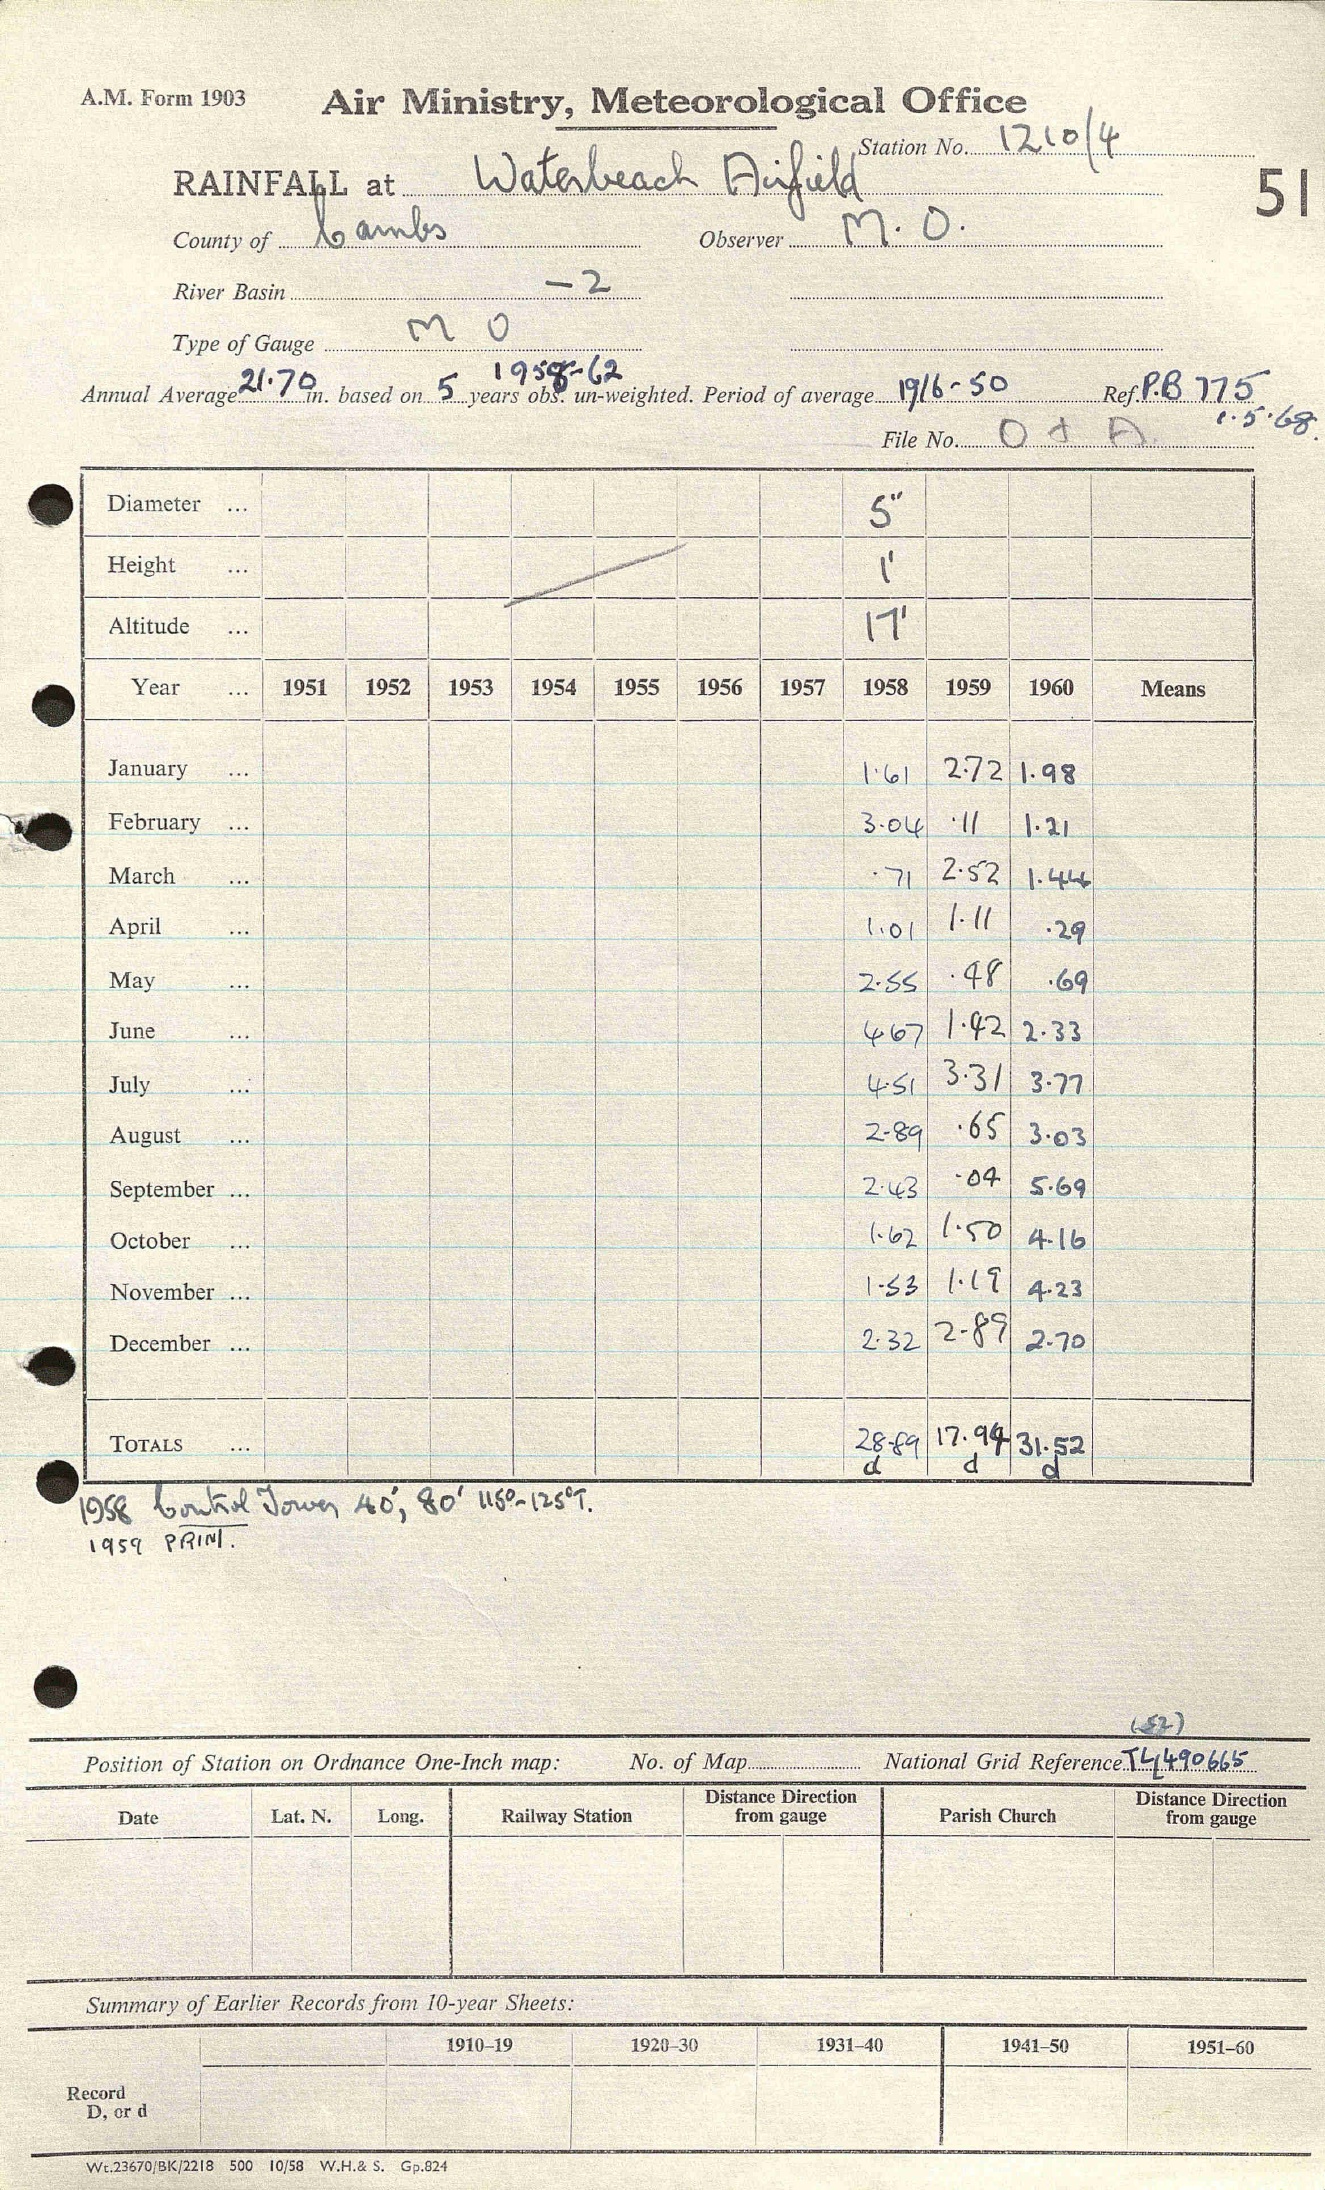 A.M. Form 1903 Air Ministry, Meteorological Office
Station No. 1210/4
RAINFALL at Waterbeach Airfield
51
County of Cambs Observer M. O.
River Basin -2
Type of Gauge M O
1958-62
Annual Average 21.70 in. based on 5 years obs. un-weighted. Period of average 1916-50 Ref. P.B 775
1.5.68.
File No. O + A.
Diameter ... 5"
Height ... 1'
Altitude ... 17'
Year ... 1951 1952 1953 1954 1955 1956 1957 1958 1959 1960 Means
January ... 1.61 2.72 1.98
February ... 3.04 .11 1.21
March ... .71 2.52 1.44
April ... 1.01 1.11 .29
May ... 2.55 .48 .69
June ... 4.67 1.42 2.33
July ... 4.51 3.31 3.77
August ... 2.89 .65 3.03
September ... 2.43 .04 5.69
October ... 1.62 1.50 4.16
November ... 1.53 1.19 4.23
December ... 2.32 2.89 2.70
TOTALS ... 28.89 17.94 31.52
d d d
1958 Control Tower 40', 80' 115°-125°T.
1959 PRINT.
(52)
Position of Station on Ordnance One-Inch map: No. of Map National Grid Reference TL490665
Date Lat. N. Long. Railway Station Distance Direction from gauge Parish Church Distance Direction from gauge
Summary of Earlier Records from 10-year Sheets:
1910-19 1920-30 1931-40 1941-50 1951-60
Record
D, or d
Wt.23670/BK/2218 500 10/58 W.H.& S. Gp.824